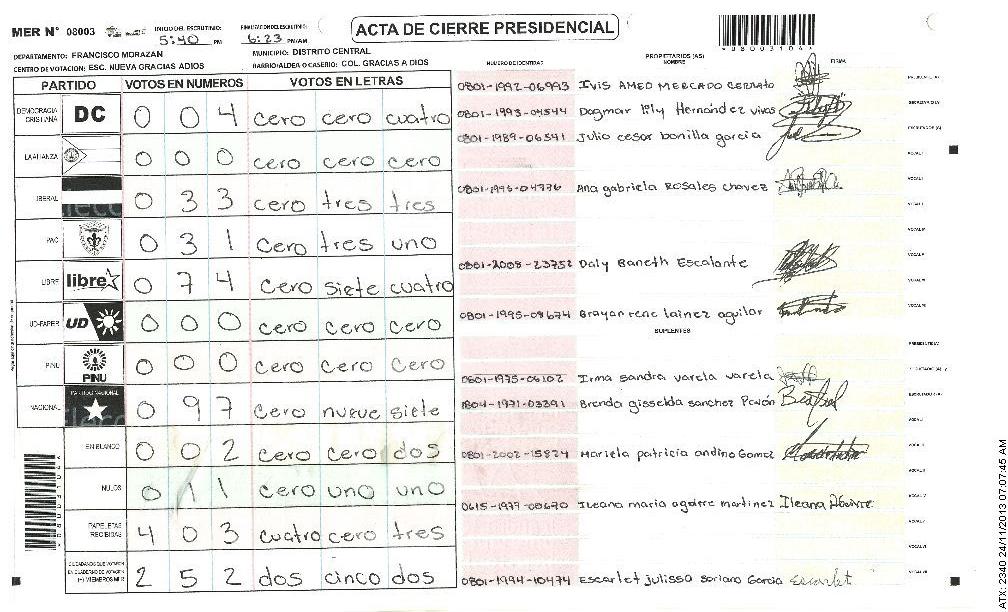 MER N° 08003
INICIO DEL ESCRUTINIO: 5:40 PM
FINALIZACION DEL ESCRUTINIO: 6:23 PM/AM
ACTA DE CIERRE PRESIDENCIAL
DEPARTAMENTO: FRANCISCO MORAZAN
MUNICIPIO: DISTRITO CENTRAL
CENTRO DE VOTACION: ESC. NUEVA GRACIAS A DIOS
BARRIO/ALDEA O CASERIO: COL. GRACIAS A DIOS
PARTIDO VOTOS EN NUMEROS VOTOS EN LETRAS
DEMOCRACIA CRISTIANA DC 0 0 4 cero cero cuatro
LA ALIANZA 0 0 0 cero cero cero
LIBERAL 0 3 3 cero tres tres
PAC 0 3 1 cero tres uno
LIBRE libre 0 7 4 cero siete cuatro
UD-FAPER UD 0 0 0 cero cero cero
PINU PINU 0 0 0 cero cero cero
NACIONAL PARTIDO NACIONAL 0 9 7 cero nueve siete
EN BLANCO 0 0 2 cero cero dos
NULOS 0 1 1 cero uno uno
PAPELETAS RECIBIDAS 4 0 3 cuatro cero tres
CIUDADANOS QUE VOTARON EN CUADERNO DE VOTACION (+) MIEMBROS MER 2 5 2 dos cinco dos
NUMERO DE IDENTIDAD PROPIETARIOS (AS) NOMBRE FIRMA
0801-1992-06993 Ivis AMED MERCADO cerrato
0801-1993-04544 Dagmar lily Hernández vivas
0801-1989-06541 Julio cesar bonilla garcia
Ana gabriela Rosales chavez
0801-2008-23752 Daly Baneth Escalante
0801-1995-08674 Brayan rene lainez aguilar
SUPLENTES
0801-1975-06102 Irma sandra varela varela
1804-1971-03391 Brenda gisselda sanchez Pavón
0801-2002-15824 Mariela patricia andino Gomez
0615-1977-00670 Ileana maria aguirre martinez Ileana Aguirre
0801-1994-10474 Escarlet julissa soriano Garcia Escarlet
ATX: 2340 24/11/2013 07:07:45 AM